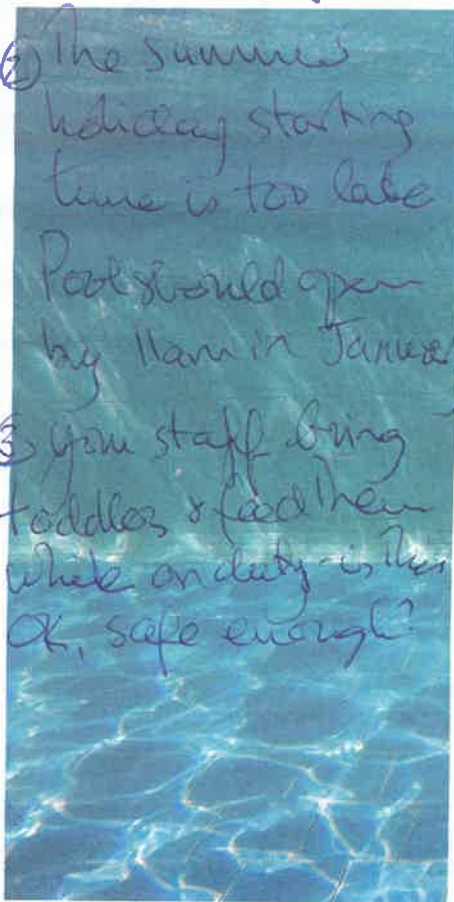 ② The summer
holiday starting
time is too late
Pool should open
by 11am in Januar
③ your staff bring
toddlers & feed them
while on duty - is this
OK, safe enough?